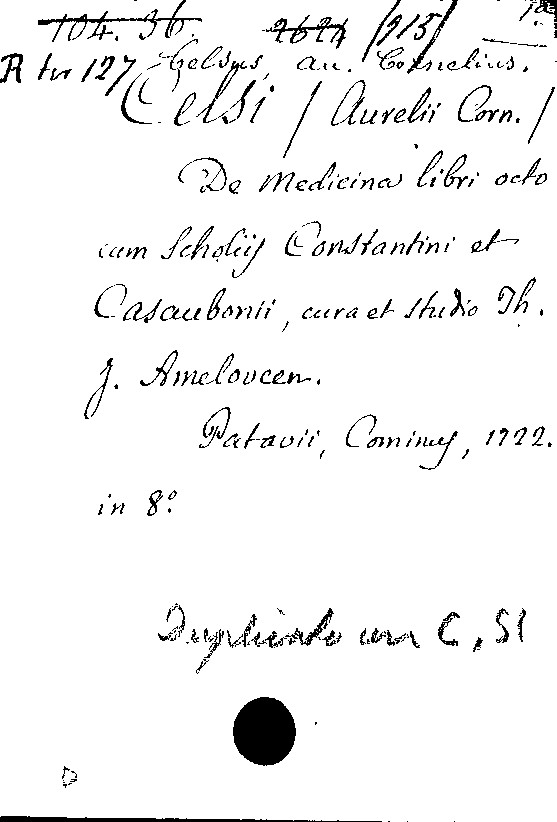 104. 36. 2624 (915)
R tw 127 Celsus, au. Cornelius.
Celsi / Aurelii Corn. /
De Medicina libri octo
cum Scholiis Constantini et
Casaubonii, cura et studio Th.
J. Ameloucen.
Patavii, Cominus, 1722.
in 8.º
Duplicado con C, 51
D